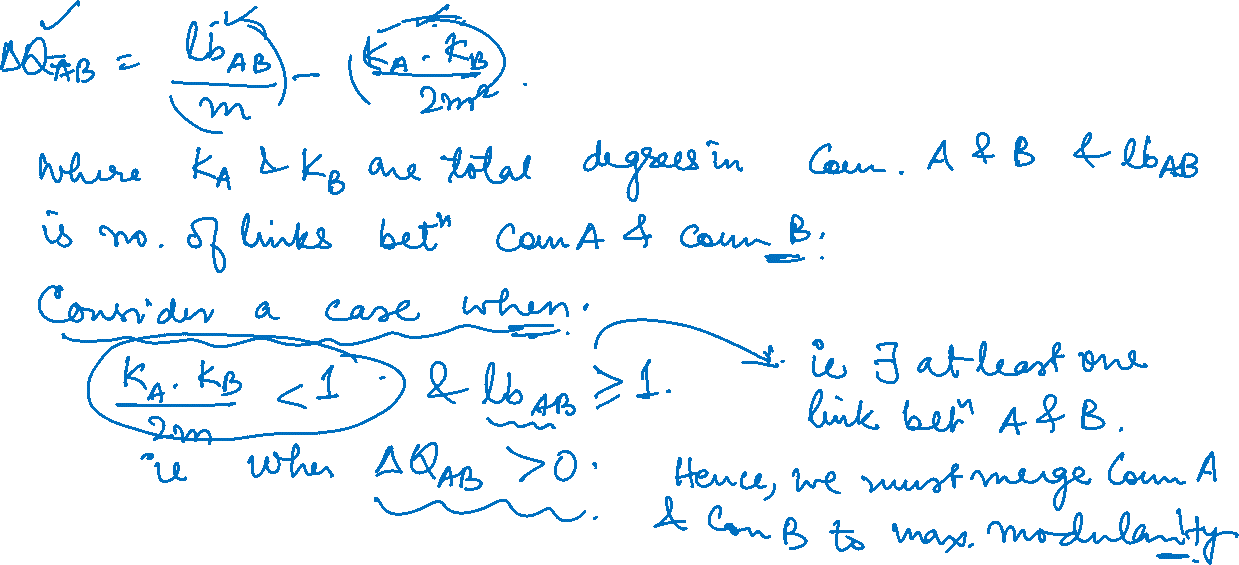 ΔQ_AB = lb_AB / m - (K_A . K_B / 2m²).
where K_A & K_B are total degrees in Com. A & B & lb_AB
is no. of links betⁿ Com A & Com B.
Consider a case when.
K_A . K_B / 2m < 1 & lb_AB ≥ 1. → ie ∃ at least one
link betⁿ A & B.
ie when ΔQ_AB > 0. Hence, we must merge Com A
& Com B to max. modularity